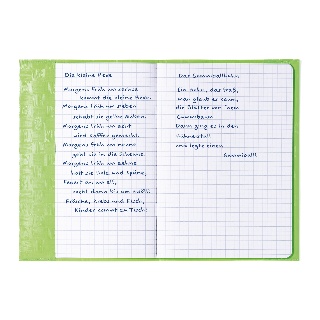 Die kleine Hexe
Morgens früh um sechse
kommt die kleine Hexe.
Morgens früh um sieben
schabt sie gelbe Rüben.
Morgens früh um acht
wird Kaffee gemacht.
Morgens früh um neune
geht sie in die Scheune.
Morgens früh um zehne
holt sie Holz und Späne,
feuert an um elf,
kocht dann bis um zwölf:
Frösche, Krebs und Fisch,
Kinder kommt zu Tisch!
Das Gummiballhuhn
Ein Huhn, das fraß,
man glaubt es kaum,
die Blätter von 'nem
Gummibaum
Dann ging es in den
Hühnerstall
und legte einen
Gummiball!